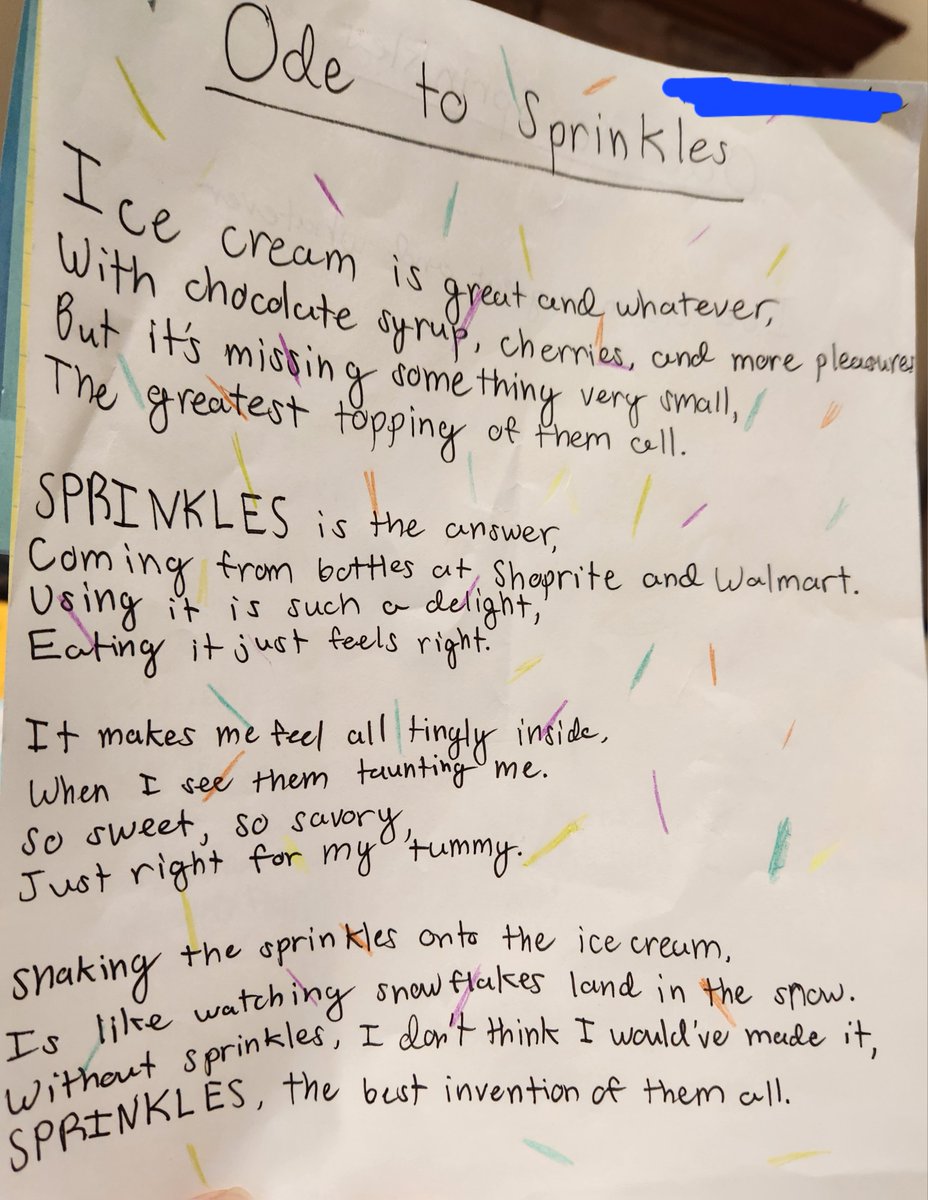 Ode to Sprinkles
Ice cream is great and whatever,
With chocolate syrup, cherries, and more pleasures
But it's missing something very small,
The greatest topping of them all.
SPRINKLES is the answer,
Coming from bottles at Shoprite and Walmart.
Using it is such a delight,
Eating it just feels right.
It makes me feel all tingly inside,
When I see them taunting me.
So sweet, so savory,
Just right for my tummy.
Shaking the sprinkles onto the ice cream,
Is like watching snowflakes land in the snow.
Without sprinkles, I don't think I would've made it,
SPRINKLES, the best invention of them all.